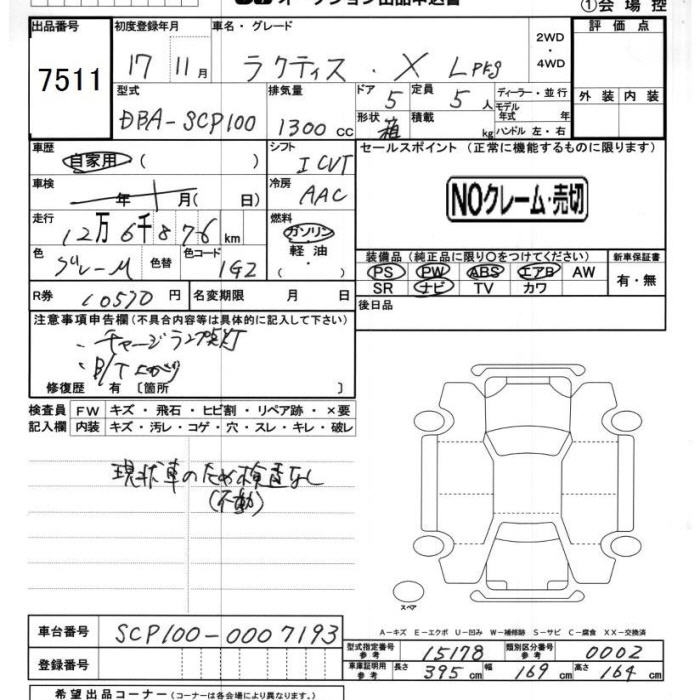 ①会場控
出品番号 初度登録年月 車名・グレード 評価点
7511 17 11月 ラクティス・X Lpkg 2WD・4WD
型式 排気量 ドア 5 定員 5人 ディーラー・並行 外装 内装
DBA-SCP100 1300cc 形状 箱 積載 kg モデル年式 年 ハンドル 左・右
車歴 自家用 ( ) シフト ICVT セールスポイント (正常に機能するものに限ります)
車検 年 月( 日) 冷房 AAC NOクレーム・売切
走行 12万6千876km 燃料 ガソリン 軽油 ( )
色 グレーM 色替 色コード 1G2 装備品 (純正品に限り○をつけてください) 新車保証書
PS PW ABS エアB AW 有・無
SR ナビ TV カワ
R券 10570円 名変期限 月 日 後日品
注意事項申告欄 (不具合内容等は具体的に記入して下さい)
・チャージランプ点灯
・B/T上がり
修復歴 有〔箇所 〕
検査員 FW キズ・飛石・ヒビ割・リペア跡・×要
記入欄 内装 キズ・汚レ・コゲ・穴・スレ・キレ・破レ
現状車のため検査なし
(不動)
スペア
A-キズ E-エクボ U-凹み W-補修跡 S-サビ C-腐食 XX-交換済
車台番号 SCP100-0007193
型式指定番号 参考 15178 類別区分番号 参考 0002
登録番号 車庫証明用 参考 長さ 395cm 幅 169cm 高さ 164cm
希望出品コーナー (コーナーは各会場により異なります。)